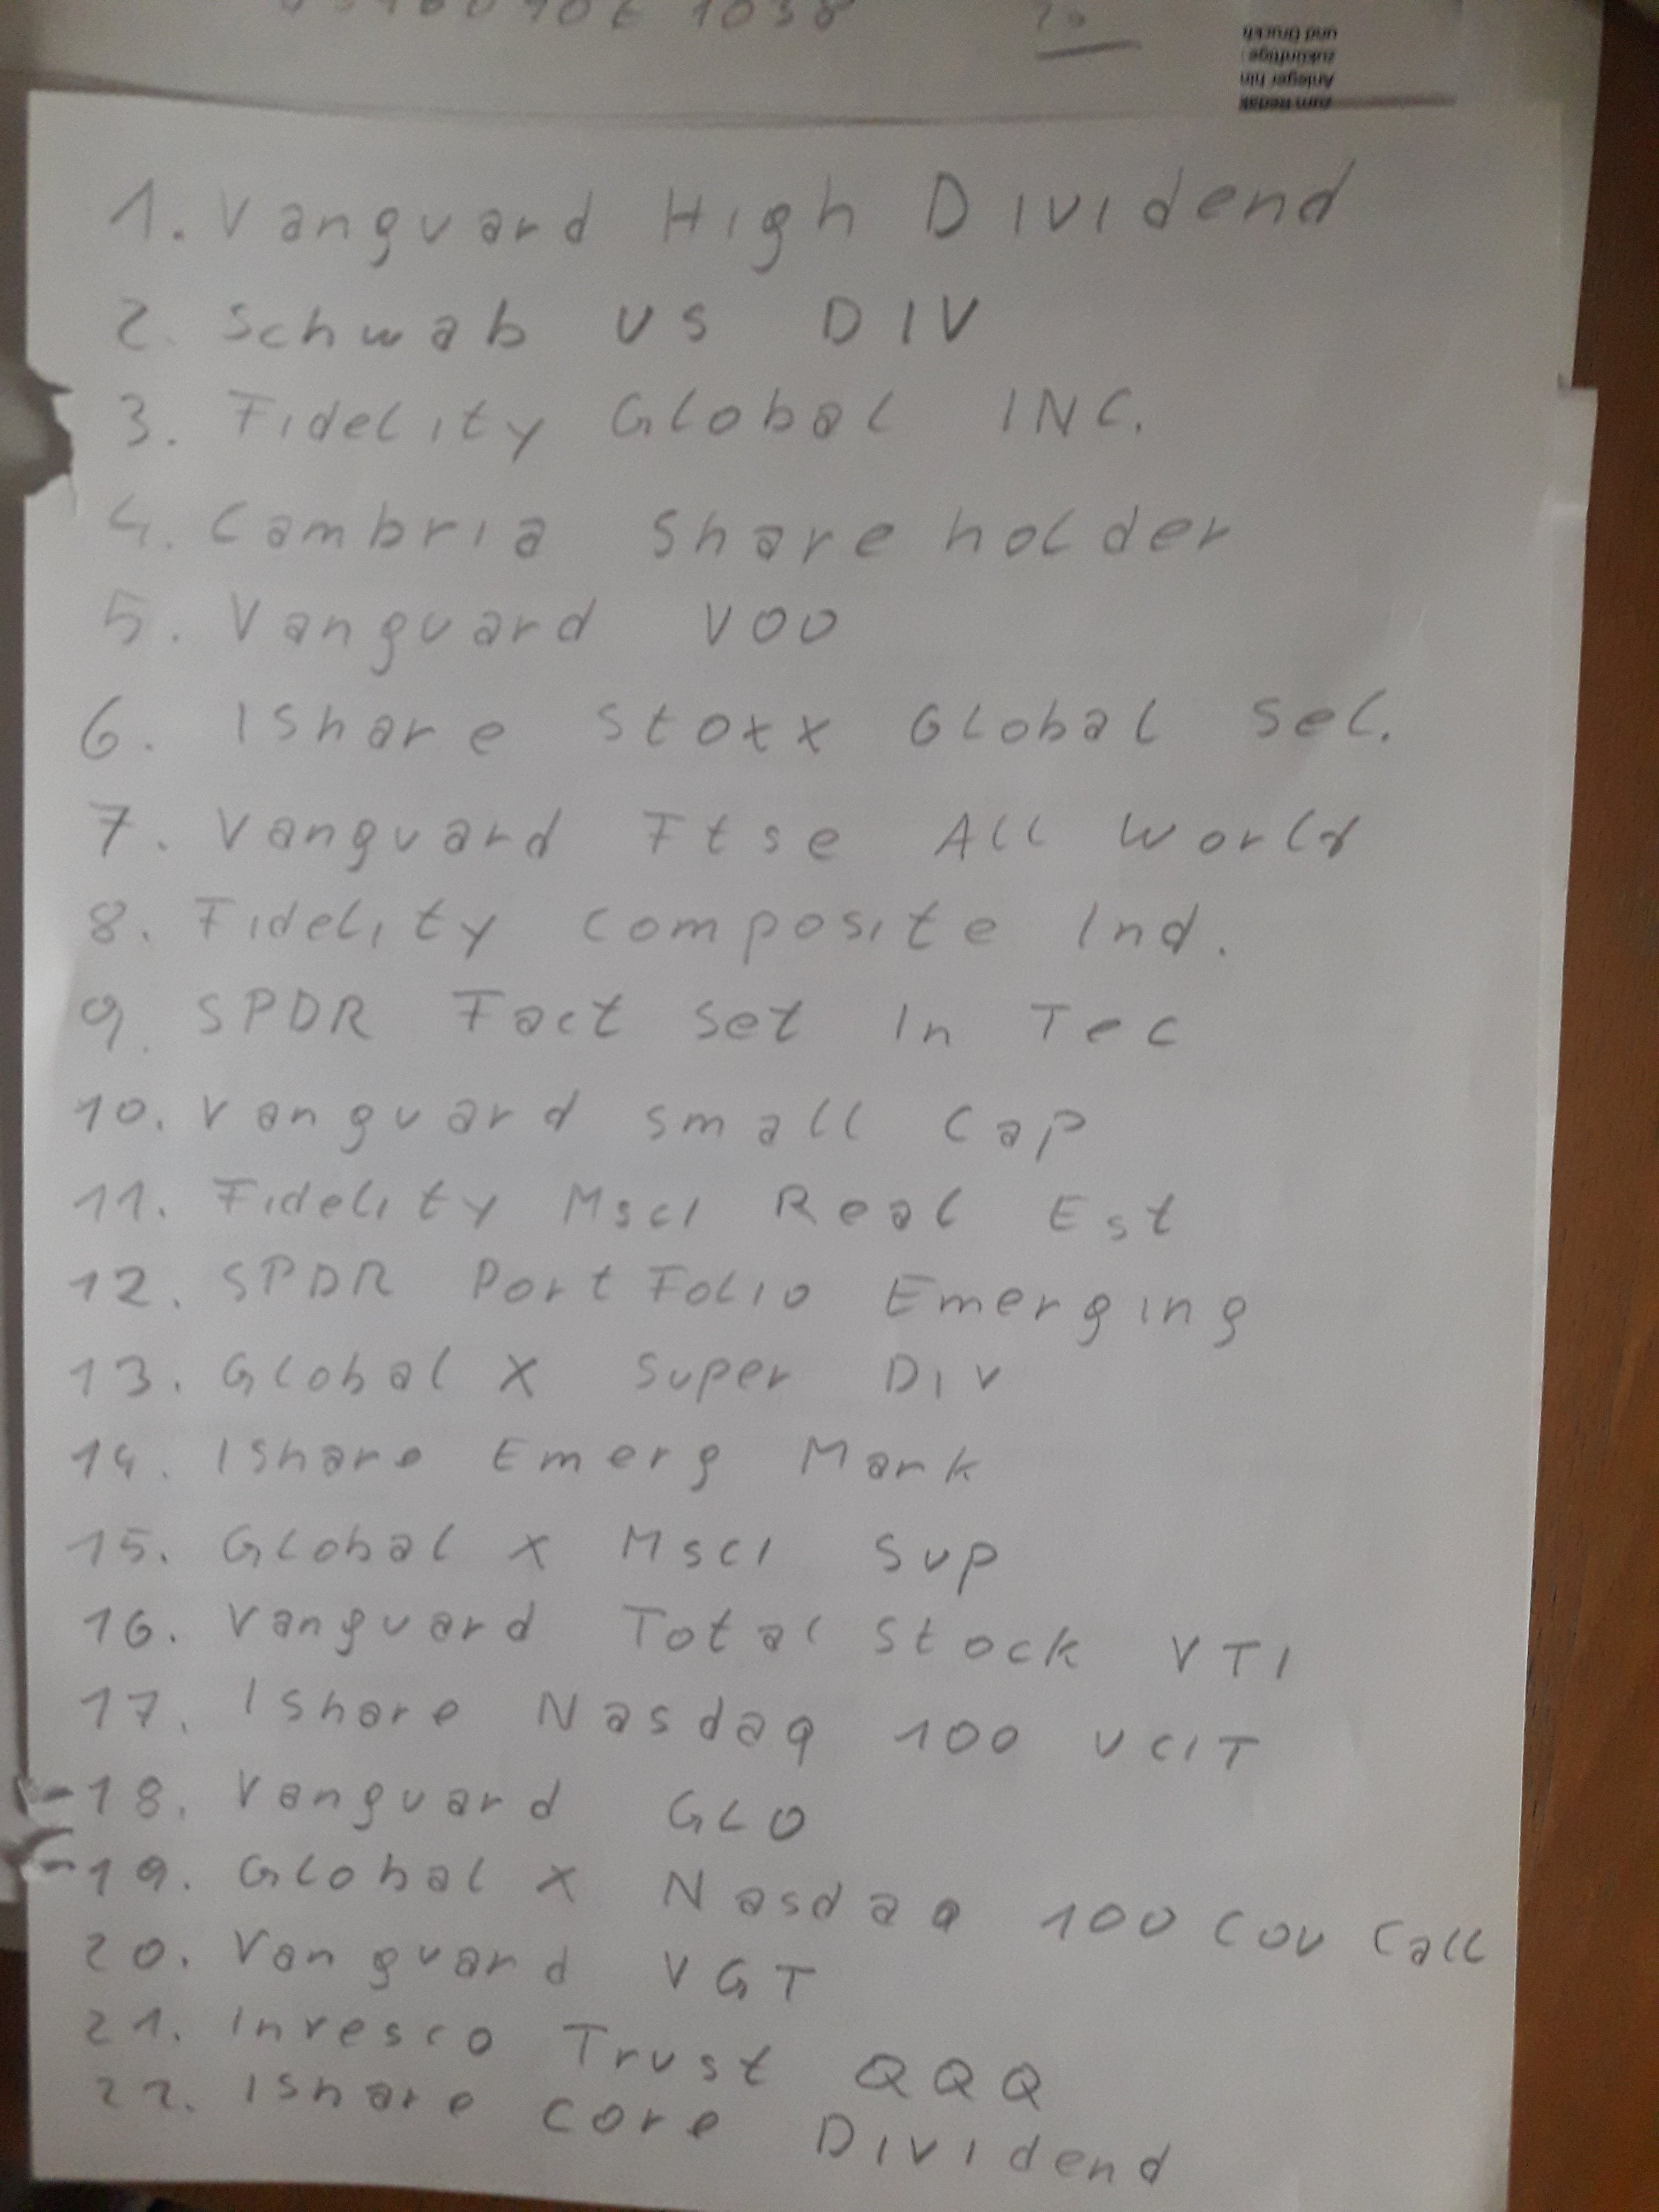 1038
und Druckfr
zukünftige
Anleger hin
zum Redak
1. Vanguard High Dividend
2. Schwab US DIV
3. Fidelity Global INC.
4. Cambria Share holder
5. Vanguard VOO
6. IShare Stoxx Global Sel.
7. Vanguard Ftse All World
8. Fidelity Composite Ind.
9. SPDR Fact Set In Tec
10. Vanguard Small Cap
11. Fidelity Msci Real Est
12. SPDR PortFolio Emerging
13. Global X Super Div
14. IShare Emerg Mark
15. Global X Msci Sup
16. Vanguard Total Stock VTI
17. IShare Nasdaq 100 UCIT
-18. Vanguard GLO
-19. Global X Nasdaq 100 Cov Call
20. Vanguard VGT
21. Invesco Trust QQQ
22. IShare Core Dividend